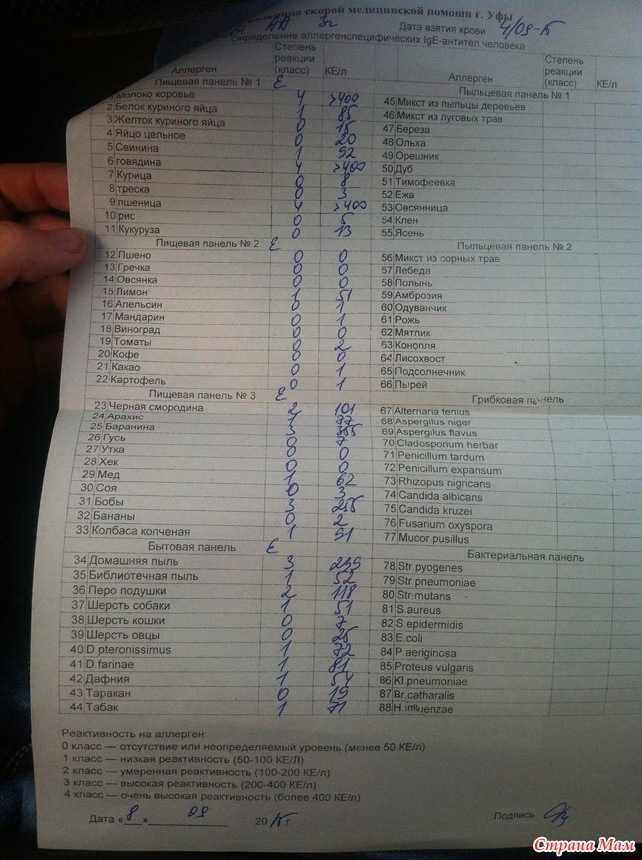 скорой медицинской помощи г. Уфы
Дата взятия крови 4/09-15
определение аллергенспецифических IgE-антител человека
Аллерген Степень реакции (класс) КЕ/л
Пищевая панель № 1 E
молоко коровье 4 >400
2 Белок куриного яйца 1 85
3 Желток куриного яйца 0 15
4 Яйцо цельное 0 20
5 Свинина 1 52
6 говядина 4 >400
7 Курица 0 8
8 треска 0 3
9 пшеница 4 >400
10 рис 0 5
11 Кукуруза 0 13
Пищевая панель № 2 E
12 Пшено 0 0
13 Гречка 0 0
14 Овсянка 0 0
15 Лимон 1 51
16 Апельсин 0 1
17 Мандарин 0 1
18 Виноград 0 0
19 Томаты 0 2
20 Кофе 0 0
21 Какао 0 1
22 Картофель 0 1
Пищевая панель № 3 E
23 Черная смородина 2 101
24 Арахис 1
25 Баранина 3 355
26 Гусь 0 7
27 Утка 0 0
28 Хек 0 0
29 Мед 1 62
30 Соя 0 3
31 Бобы 3 255
32 Бананы 0 2
33 Колбаса копченая 1 51
Бытовая панель E
34 Домашняя пыль 3 239
35 Библиотечная пыль 1 52
36 Перо подушки 2 118
37 Шерсть собаки 1 51
38 Шерсть кошки 0 7
39 Шерсть овцы 0 25
40 D.pteronissimus 1 72
41 D.farinae 1 81
42 Дафния 1 54
43 Таракан 0 19
44 Табак 1 71
Аллерген Степень реакции (класс) КЕ/л
Пыльцевая панель № 1
45 Микст из пыльцы деревьев
46 Микст из луговых трав
47 Береза
48 Ольха
49 Орешник
50 Дуб
51 Тимофеевка
52 Ежа
53 Овсянница
54 Клен
55 Ясень
Пыльцевая панель № 2
56 Микст из сорных трав
57 Лебеда
58 Полынь
59 Амброзия
60 Одуванчик
61 Рожь
62 Мятлик
63 Конопля
64 Лисохвост
65 Подсолнечник
66 Пырей
Грибковая панель
67 Alternaria tenius
68 Aspergilus niger
69 Aspergilus flavus
70 Cladosporium herbar
71 Penicillium tardum
72 Penicillium expansum
73 Rhizopus nigricans
74 Candida albicans
75 Candida kruzei
76 Fusarium oxyspora
77 Mucor pusillus
Бактериальная панель
78 Str.pyogenes
79 Str.pneumoniae
80 Str.mutans
81 S.aureus
82 S.epidermidis
83 E.coli
84 P.aeriginosa
85 Proteus vulgaris
86 Kl.pneumoniae
87 Br.catharalis
88 H.influenzae
Реактивность на аллерген:
0 класс — отсутствие или неопределяемый уровень (менее 50 КЕ/л)
1 класс — низкая реактивность (50-100 КЕ/Л)
2 класс — умеренная реактивность (100-200 КЕ/л)
3 класс — высокая реактивность (200-400 КЕ/л)
4 класс — очень высокая реактивность (более 400 КЕ/л)
Дата «8» 09 2015 г Подпись
Страна Мам